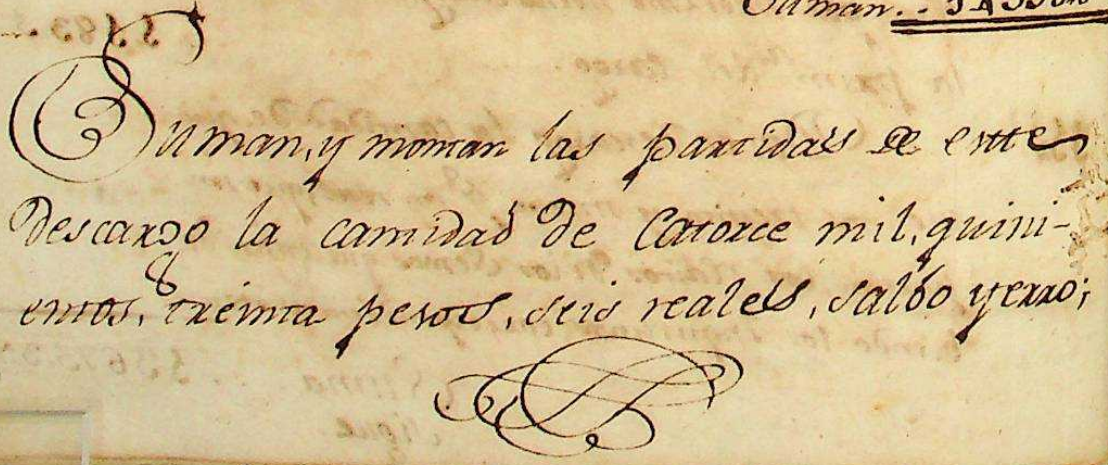 Suman..
Suman, y montan las partidas de estte
Descargo la cantidad de Catorce mil, quini-
entos, treinta pesos, seis reales, salbo yerro;